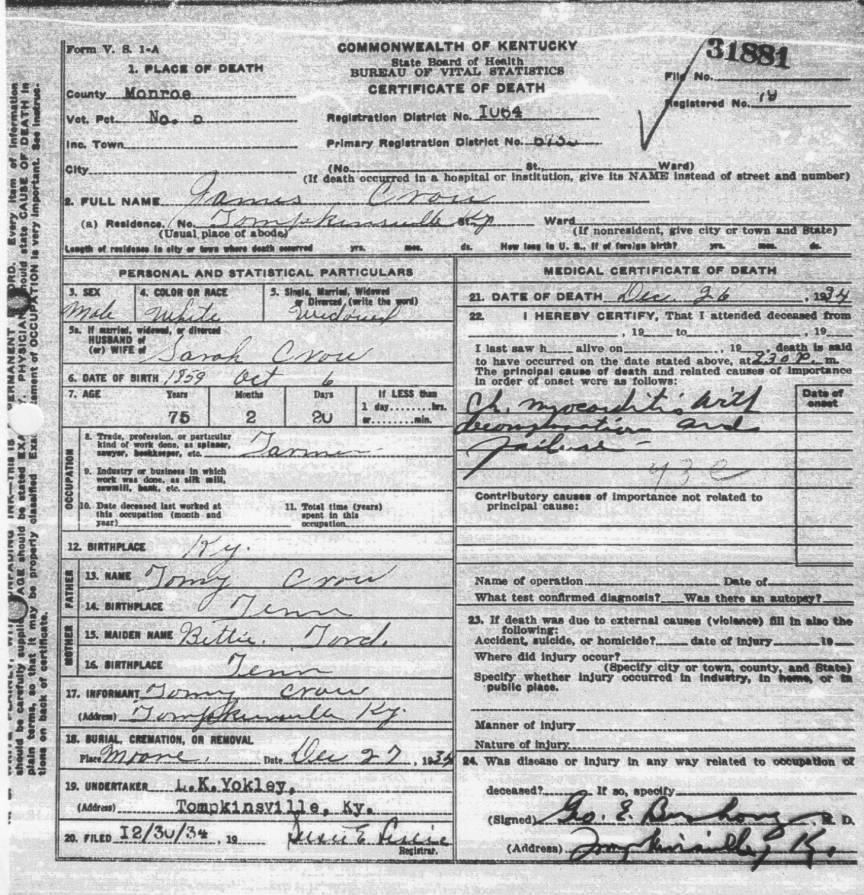 Form V. S. 1-A
COMMONWEALTH OF KENTUCKY
State Board of Health
BUREAU OF VITAL STATISTICS
CERTIFICATE OF DEATH
31881
File No.
Registered No.
1. PLACE OF DEATH
County Monroe
Vot. Pct. No.
Inc. Town
City
Registration District No. 1064
Primary Registration District No.
(No. St., Ward)
(If death occurred in a hospital or institution, give its NAME instead of street and number)
2. FULL NAME James Crow
(a) Residence. No. Tompkinsville Ky St., Ward
(Usual place of abode) (If nonresident, give city or town and State)
Length of residence in city or town where death occurred yrs. mos. ds. How long in U. S., if of foreign birth? yrs. mos. ds.
PERSONAL AND STATISTICAL PARTICULARS
3. SEX
Male
4. COLOR OR RACE
White
5. Single, Married, Widowed
or Divorced, (write the word)
Widowed
5a. If married, widowed, or divorced
HUSBAND of
(or) WIFE of
Sarah Crow
6. DATE OF BIRTH 1859 Oct 6
7. AGE Years Months Days If LESS than
1 day........hrs.
or........min.
75 2 20
OCCUPATION
8. Trade, profession, or particular
kind of work done, as spinner,
sawyer, bookkeeper, etc. Farmer
9. Industry or business in which
work was done, as silk mill,
sawmill, bank, etc.
10. Date deceased last worked at
this occupation (month and
year)
11. Total time (years)
spent in this
occupation
12. BIRTHPLACE Ky.
FATHER
13. NAME Tomy Crow
14. BIRTHPLACE Tenn
MOTHER
15. MAIDEN NAME Bettie Ford
16. BIRTHPLACE Tenn
17. INFORMANT Tomy Crow
(Address) Tompkinsville Ky.
18. BURIAL, CREMATION, OR REMOVAL
Place Moore Date Dec 27, 1934
19. UNDERTAKER L.K.Yokley,
(Address) Tompkinsville, Ky.
20. FILED 12/30/34, 19
Registrar.
MEDICAL CERTIFICATE OF DEATH
21. DATE OF DEATH Dec. 26, 1934
22. I HEREBY CERTIFY, That I attended deceased from
, 19 to , 19
I last saw h alive on , 19 death is said
to have occurred on the date stated above, at 2:30 P. m.
The principal cause of death and related causes of importance
in order of onset were as follows:
Date of
onset
Ch. myocarditis with
decompensation and
failure -
Contributory causes of importance not related to
principal cause:
Name of operation Date of
What test confirmed diagnosis? Was there an autopsy?
23. If death was due to external causes (violence) fill in also the
following:
Accident, suicide, or homicide? date of injury 19
Where did injury occur?
(Specify city or town, county, and State)
Specify whether injury occurred in industry, in home, or in
public place.
Manner of injury
Nature of injury
24. Was disease or injury in any way related to occupation of
deceased? If so, specify
(Signed) Geo. E. Bushong
(Address) Tompkinsville, Ky.